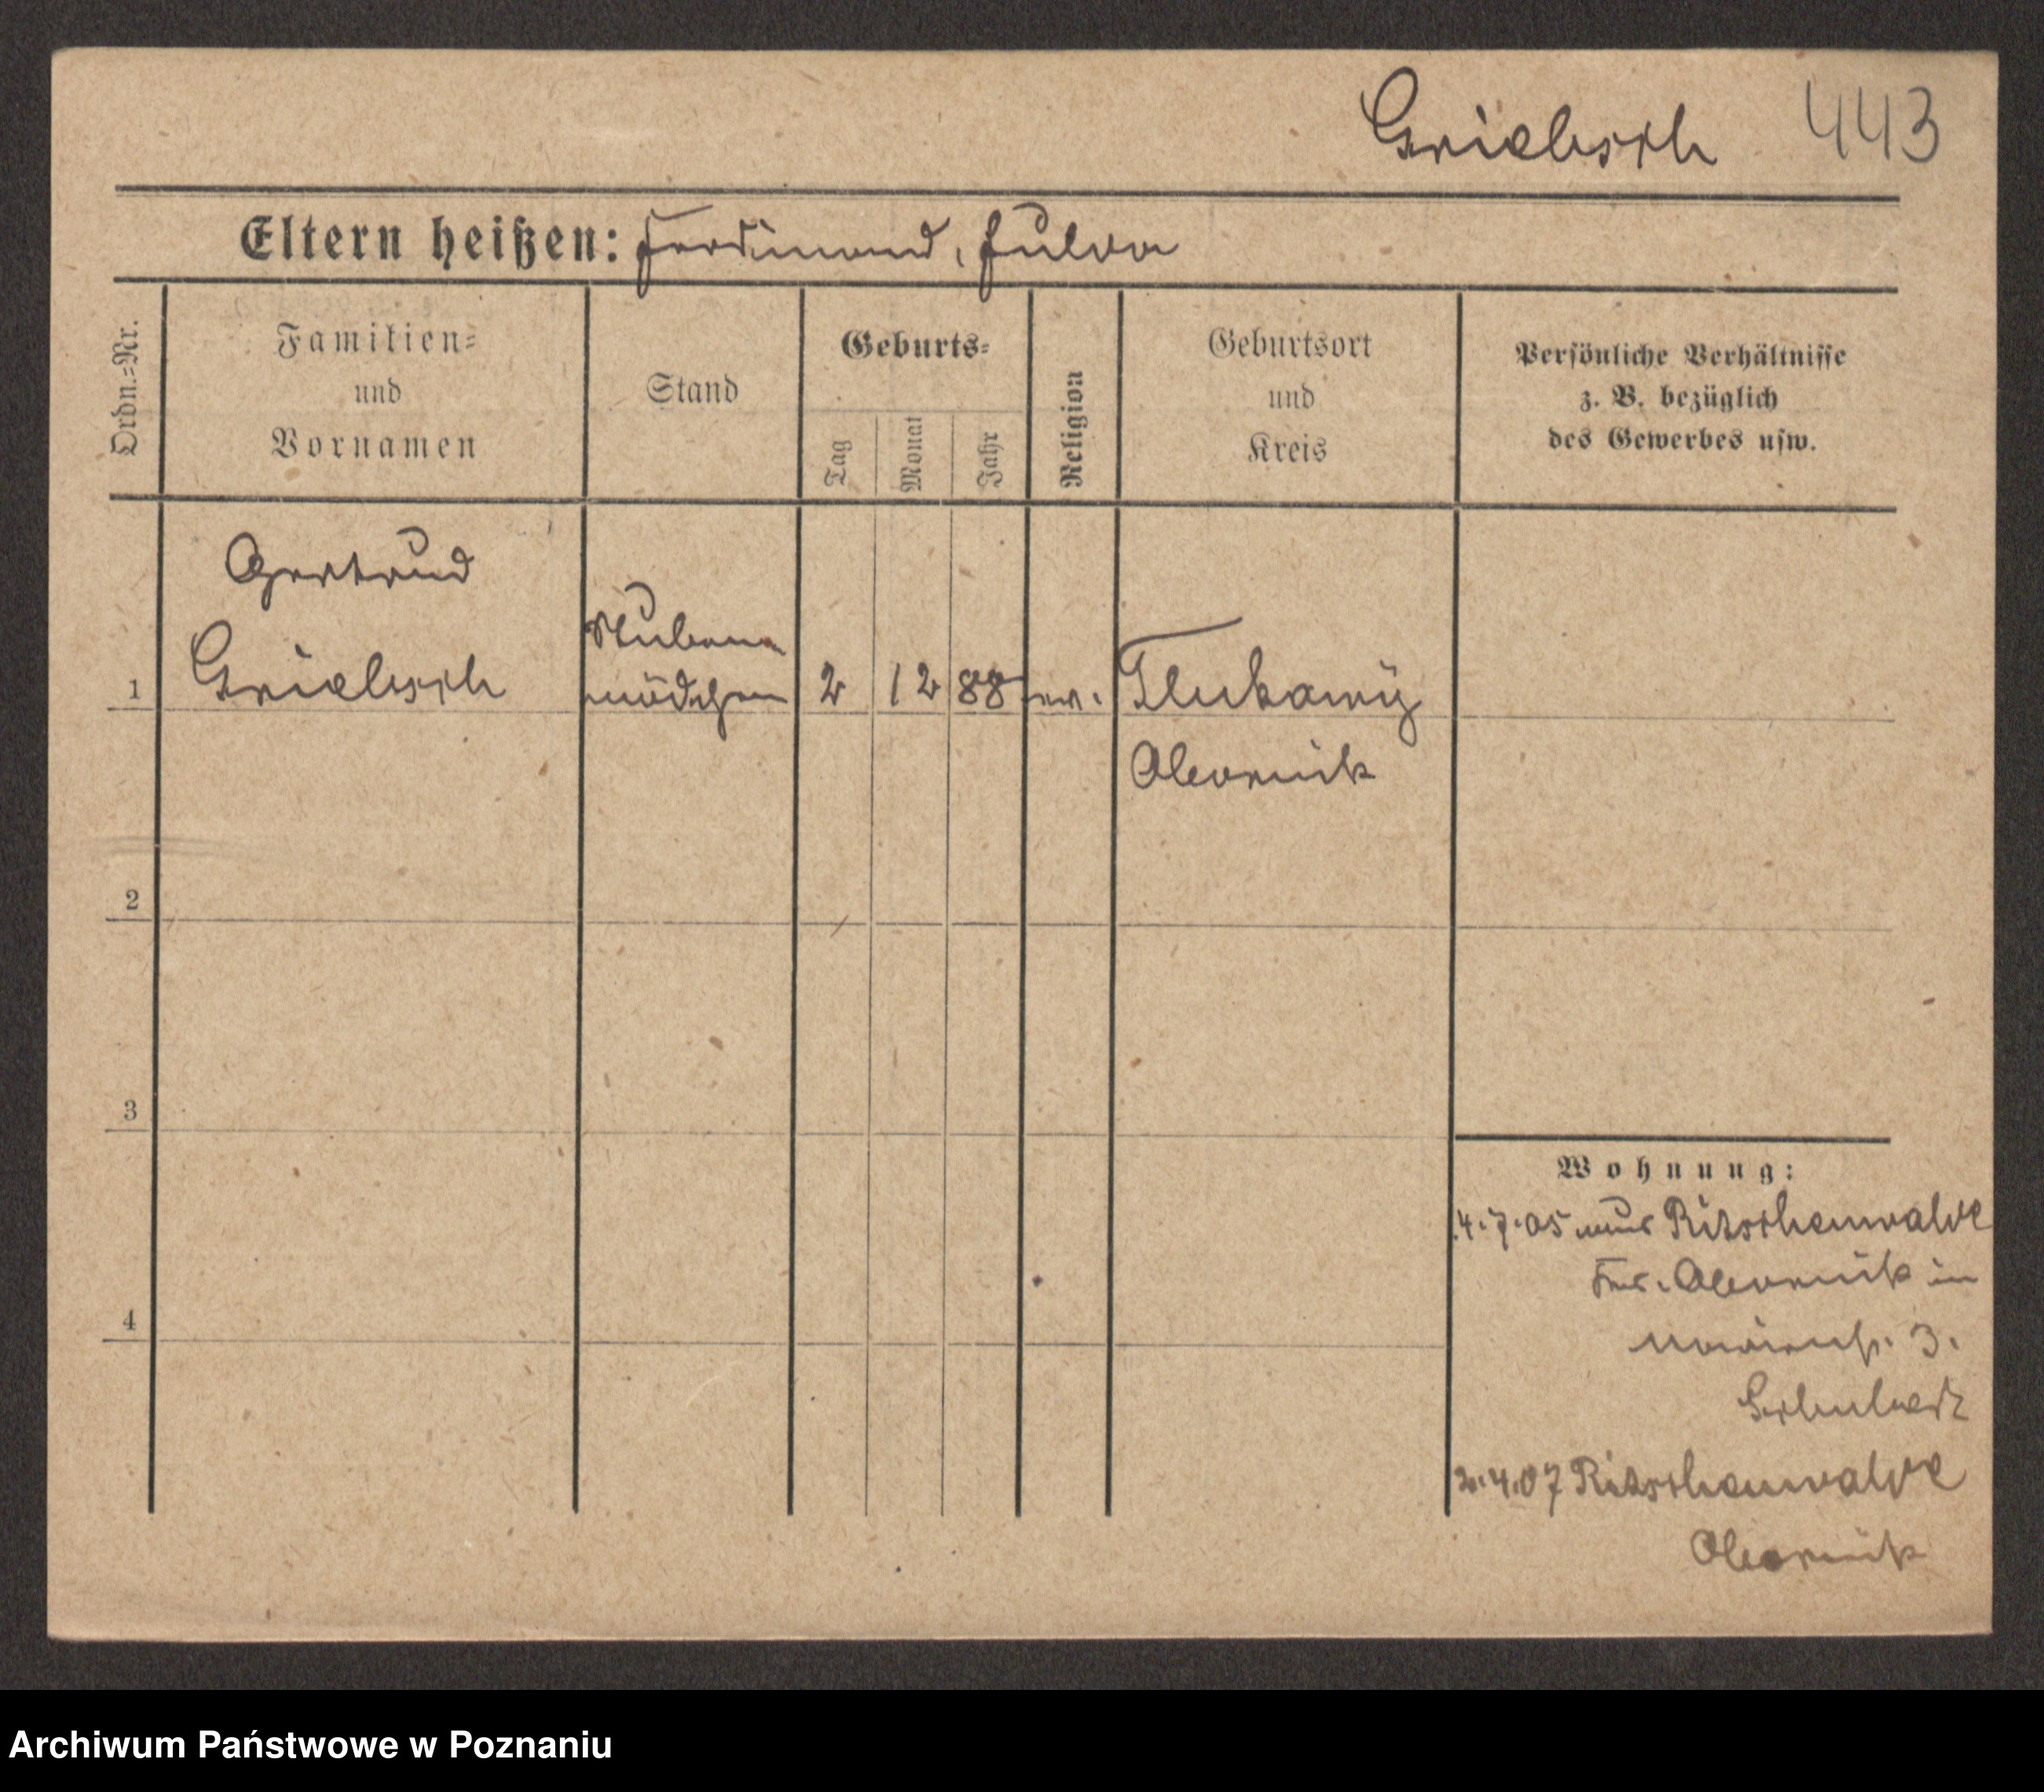 Griebsch 443
Eltern heißen: Ferdinand, Hulda
Ordn.=Nr.
Familien=
und
Vornamen
Stand
Geburts=
Tag
Monat
Jahr
Religion
Geburtsort
und
Kreis
Persönliche Verhältnisse
z. B. bezüglich
des Gewerbes usw.
Gertrud
1 Griebsch
Stuben
mädchen
2 12 88 ev. Tlukawy
Obornik
2
3
4
Wohnung:
4.7.05 aus Ritschenwalde
Obornik in
3.
Schubert
2.4.07 Ritschenwalde
Obornik
Archiwum Państwowe w Poznaniu